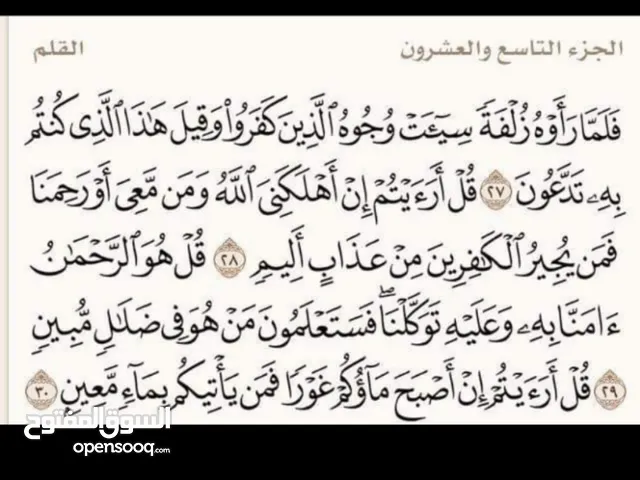 الجزء التاسع والعشرون
القلم
فَلَمَّا رَأَوۡهُ زُلۡفَةٗ سِيٓـَٔتۡ وُجُوهُ ٱلَّذِينَ كَفَرُواْ وَقِيلَ هَٰذَا ٱلَّذِي كُنتُم
بِهِۦ تَدَّعُونَ ٢٧ قُلۡ أَرَءَيۡتُمۡ إِنۡ أَهۡلَكَنِيَ ٱللَّهُ وَمَن مَّعِيَ أَوۡ رَحِمَنَا
فَمَن يُجِيرُ ٱلۡكَٰفِرِينَ مِنۡ عَذَابٍ أَلِيمٖ ٢٨ قُلۡ هُوَ ٱلرَّحۡمَٰنُ
ءَامَنَّا بِهِۦ وَعَلَيۡهِ تَوَكَّلۡنَاۖ فَسَتَعۡلَمُونَ مَنۡ هُوَ فِي ضَلَٰلٖ مُّبِينٖ
٢٩ قُلۡ أَرَءَيۡتُمۡ إِنۡ أَصۡبَحَ مَآؤُكُمۡ غَوۡرٗا فَمَن يَأۡتِيكُم بِمَآءٖ مَّعِينِۭ ٣٠
السوق المفتوح
opensooq.com